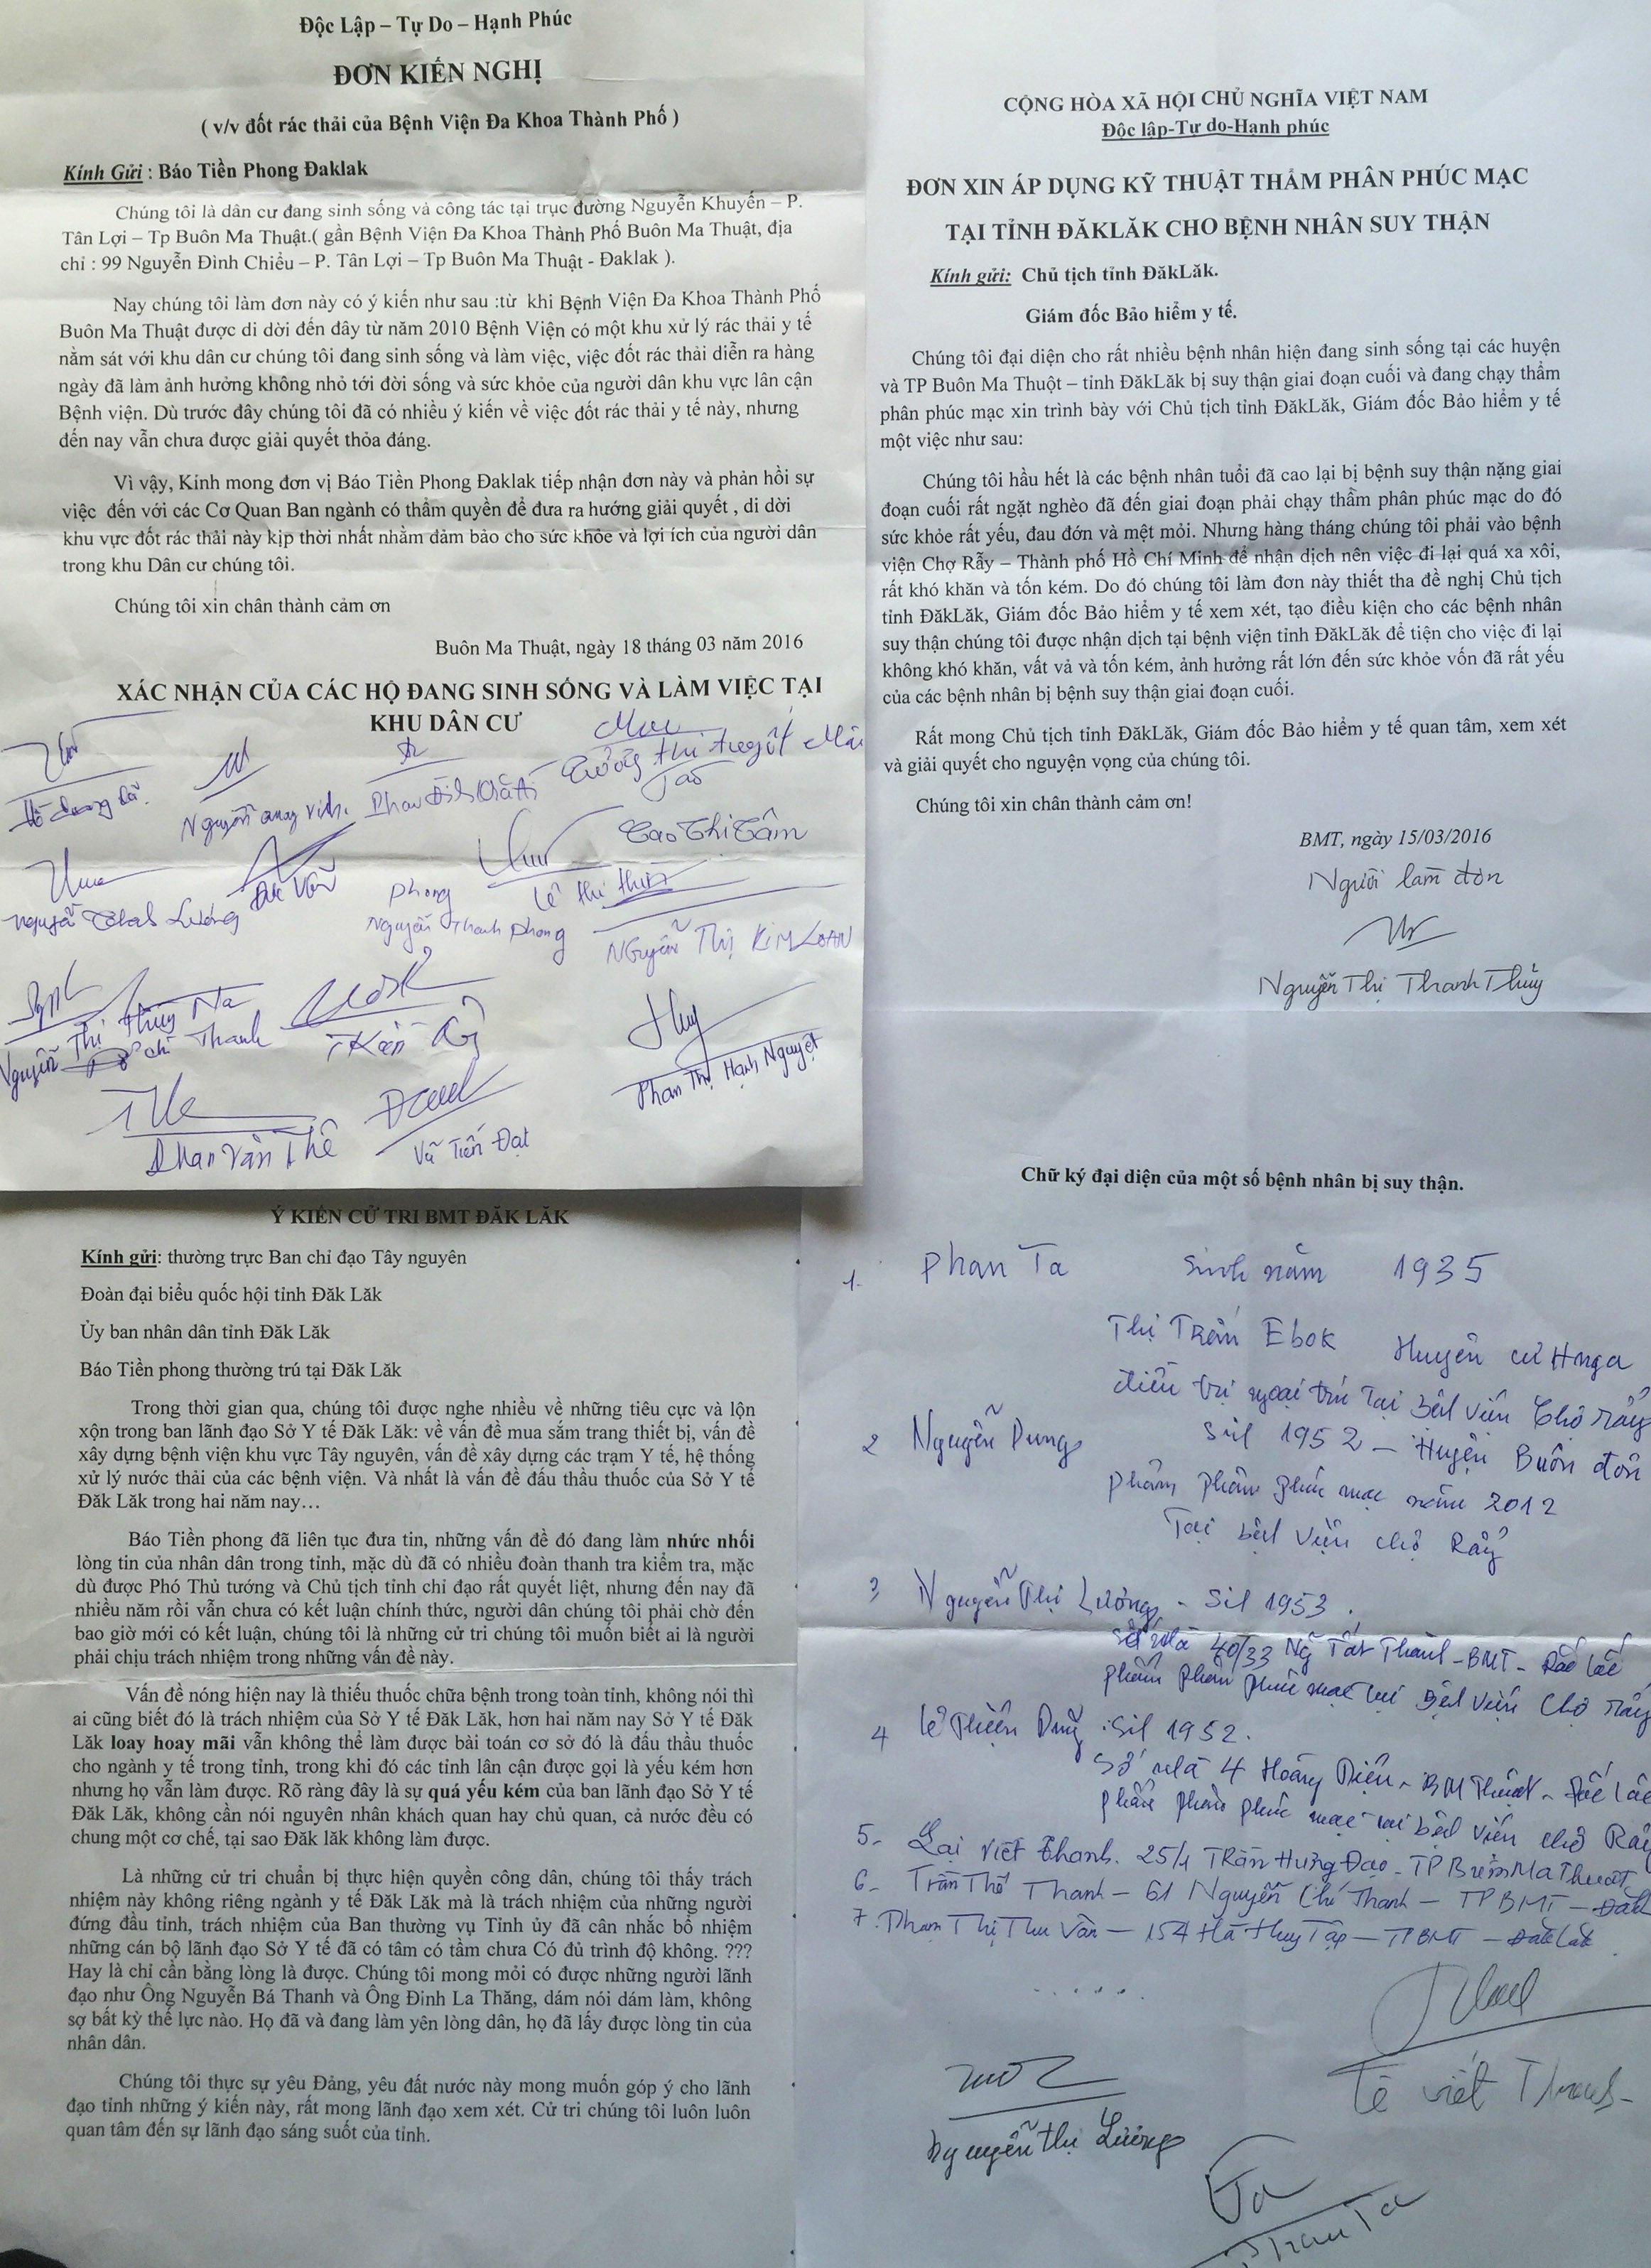 Độc Lập – Tự Do – Hạnh Phúc
ĐƠN KIẾN NGHỊ
( v/v đốt rác thải của Bệnh Viện Đa Khoa Thành Phố )
Kính Gửi : Báo Tiền Phong Đaklak
Chúng tôi là dân cư đang sinh sống và công tác tại trục đường Nguyễn Khuyến – P.
Tân Lợi – Tp Buôn Ma Thuật.( gần Bệnh Viện Đa Khoa Thành Phố Buôn Ma Thuật, địa
chỉ : 99 Nguyễn Đình Chiểu – P. Tân Lợi – Tp Buôn Ma Thuật - Đaklak ).
Nay chúng tôi làm đơn này có ý kiến như sau :từ khi Bệnh Viện Đa Khoa Thành Phố
Buôn Ma Thuật được di dời đến đây từ năm 2010 Bệnh Viện có một khu xử lý rác thải y tế
nằm sát với khu dân cư chúng tôi đang sinh sống và làm việc, việc đốt rác thải diễn ra hàng
ngày đã làm ảnh hưởng không nhỏ tới đời sống và sức khỏe của người dân khu vực lân cận
Bệnh viện. Dù trước đây chúng tôi đã có nhiều ý kiến về việc đốt rác thải y tế này, nhưng
đến nay vẫn chưa được giải quyết thỏa đáng.
Vì vậy, Kính mong đơn vị Báo Tiền Phong Đaklak tiếp nhận đơn này và phản hồi sự
việc đến với các Cơ Quan Ban ngành có thẩm quyền để đưa ra hướng giải quyết , di dời
khu vực đốt rác thải này kịp thời nhất nhằm dảm bảo cho sức khỏe và lợi ích của người dân
trong khu Dân cư chúng tôi.
Chúng tôi xin chân thành cảm ơn
Buôn Ma Thuật, ngày 18 tháng 03 năm 2016
XÁC NHẬN CỦA CÁC HỘ ĐANG SINH SỐNG VÀ LÀM VIỆC TẠI
KHU DÂN CƯ
Nguyễn quang vinh.
Cao Thị Tâm
Phong
Lê thị thìn
Nguyễn Thanh Phong
NGuyễn Thị KIM LOAN
Nguyễn Thị Thúy Na
Chí Thanh
Huy
Phan Thị Hạnh Nguyệt
Phan Văn Thê
Vũ Tiến Đạt
CỘNG HÒA XÃ HỘI CHỦ NGHĨA VIỆT NAM
Độc lập-Tự do-Hạnh phúc
ĐƠN XIN ÁP DỤNG KỸ THUẬT THẨM PHÂN PHÚC MẠC
TẠI TỈNH ĐĂKLĂK CHO BỆNH NHÂN SUY THẬN
Kính gửi: Chủ tịch tỉnh ĐăkLăk.
Giám đốc Bảo hiểm y tế.
Chúng tôi đại diện cho rất nhiều bệnh nhân hiện đang sinh sống tại các huyện
và TP Buôn Ma Thuột – tỉnh ĐăkLăk bị suy thận giai đoạn cuối và đang chạy thẩm
phân phúc mạc xin trình bày với Chủ tịch tỉnh ĐăkLăk, Giám đốc Bảo hiểm y tế
một việc như sau:
Chúng tôi hầu hết là các bệnh nhân tuổi đã cao lại bị bệnh suy thận nặng giai
đoạn cuối rất ngặt nghèo đã đến giai đoạn phải chạy thẩm phân phúc mạc do đó
sức khỏe rất yếu, đau đớn và mệt mỏi. Nhưng hàng tháng chúng tôi phải vào bệnh
viện Chợ Rẫy – Thành phố Hồ Chí Minh để nhận dịch nên việc đi lại quá xa xôi,
rất khó khăn và tốn kém. Do đó chúng tôi làm đơn này thiết tha đề nghị Chủ tịch
tỉnh ĐăkLăk, Giám đốc Bảo hiểm y tế xem xét, tạo điều kiện cho các bệnh nhân
suy thận chúng tôi được nhận dịch tại bệnh viện tỉnh ĐăkLăk để tiện cho việc đi lại
không khó khăn, vất vả và tốn kém, ảnh hưởng rất lớn đến sức khỏe vốn đã rất yếu
của các bệnh nhân bị bệnh suy thận giai đoạn cuối.
Rất mong Chủ tịch tỉnh ĐăkLăk, Giám đốc Bảo hiểm y tế quan tâm, xem xét
và giải quyết cho nguyện vọng của chúng tôi.
Chúng tôi xin chân thành cảm ơn!
BMT, ngày 15/03/2016
Người làm đơn
Nguyễn Thị Thanh Thủy
Ý KIẾN CỬ TRI BMT ĐĂK LĂK
Kính gửi: thường trực Ban chỉ đạo Tây nguyên
Đoàn đại biểu quốc hội tỉnh Đăk Lăk
Ủy ban nhân dân tỉnh Đăk Lăk
Báo Tiền phong thường trú tại Đăk Lăk
Trong thời gian qua, chúng tôi được nghe nhiều về những tiêu cực và lộn
xộn trong ban lãnh đạo Sở Y tế Đăk Lăk: về vấn đề mua sắm trang thiết bị, vấn đề
xây dựng bệnh viện khu vực Tây nguyên, vấn đề xây dựng các trạm Y tế, hệ thống
xử lý nước thải của các bệnh viện. Và nhất là vấn đề đấu thầu thuốc của Sở Y tế
Đăk Lăk trong hai năm nay…
Báo Tiền phong đã liên tục đưa tin, những vấn đề đó đang làm nhức nhối
lòng tin của nhân dân trong tỉnh, mặc dù đã có nhiều đoàn thanh tra kiểm tra, mặc
dù được Phó Thủ tướng và Chủ tịch tỉnh chỉ đạo rất quyết liệt, nhưng đến nay đã
nhiều năm rồi vẫn chưa có kết luận chính thức, người dân chúng tôi phải chờ đến
bao giờ mới có kết luận, chúng tôi là những cử tri chúng tôi muốn biết ai là người
phải chịu trách nhiệm trong những vấn đề này.
Vấn đề nóng hiện nay là thiếu thuốc chữa bệnh trong toàn tỉnh, không nói thì
ai cũng biết đó là trách nhiệm của Sở Y tế Đăk Lăk, hơn hai năm nay Sở Y tế Đăk
Lăk loay hoay mãi vẫn không thể làm được bài toán cơ sở đó là đấu thầu thuốc
cho ngành y tế trong tỉnh, trong khi đó các tỉnh lân cận được gọi là yếu kém hơn
nhưng họ vẫn làm được. Rõ ràng đây là sự quá yếu kém của ban lãnh đạo Sở Y tế
Đăk Lăk, không cần nói nguyên nhân khách quan hay chủ quan, cả nước đều có
chung một cơ chế, tại sao Đăk lăk không làm được.
Là những cử tri chuẩn bị thực hiện quyền công dân, chúng tôi thấy trách
nhiệm này không riêng ngành y tế Đăk Lăk mà là trách nhiệm của những người
đứng đầu tỉnh, trách nhiệm của Ban thường vụ Tỉnh ủy đã cân nhắc bổ nhiệm
những cán bộ lãnh đạo Sở Y tế đã có tâm có tầm chưa Có đủ trình độ không. ???
Hay là chỉ cần bằng lòng là được. Chúng tôi mong mỏi có được những người lãnh
đạo như Ông Nguyễn Bá Thanh và Ông Đinh La Thăng, dám nói dám làm, không
sợ bất kỳ thế lực nào. Họ đã và đang làm yên lòng dân, họ đã lấy được lòng tin của
nhân dân.
Chúng tôi thực sự yêu Đảng, yêu đất nước này mong muốn góp ý cho lãnh
đạo tỉnh những ý kiến này, rất mong lãnh đạo xem xét. Cử tri chúng tôi luôn luôn
quan tâm đến sự lãnh đạo sáng suốt của tỉnh.
Chữ ký đại diện của một số bệnh nhân bị suy thận.
1. Phan Ta Sinh năm 1935
Thị Trấn Ebok Huyện cư Hnga
điều trị ngoại trú tại bệnh viện Chợ rẫy
2 Nguyễn Dung 1952 – Huyện Buôn đôn
phẩm phân phúc mạc năm 2012
Tại bệnh viện chợ Rẫy
3 Nguyễn Thị Lương - 1953.
Số nhà 40/33 Ng Tất Thành - BMT - Đắc Lắc
phẩm phân phúc mạc tại Bệnh viện Chợ rẫy
4 1952.
Số nhà 4 Hoàng Diệu - BMThuột - Đắc Lắc
phẩm phân phúc mạc tại bệnh viện chợ Rẫy
5- Lai Viết Thanh. 25/1 Trần Hưng Đạo - TP Buôn Ma Thuột
6- Trần Thế Thanh – 61 Nguyễn Chí Thanh – TP BMT – Đắk
7. Phạm Thị Thu Vân – 154 Hà Huy Tập – TP BMT – Đắk Lắk.
......
Viết Thanh
Nguyễn Thị Lương
Ta
Phan Ta